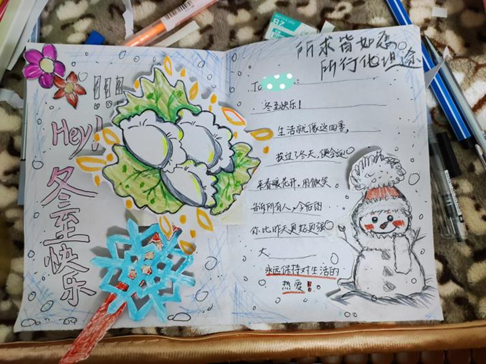 Hey!
!!!
冬至快乐
所求皆如愿
所行化坦途
To
冬至快乐!
生活就像这四季,
熬过了冬天,便会迎
来春暖花开,用微笑
告诉所有人,今后的
你比昨天更好更强
大
永远保持对生活的
热爱!